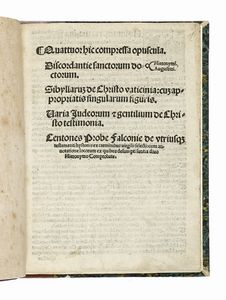 Quattuor hic compressa opuscula.
Discordantie sanctorum do-
ctorum.
Hieronymi,
Augustini.
Sibyllarum de Christo vaticinia: cum ap-
propriatis singularum figuris.
Varia Judeorum et gentilium de Chri-
sto testimonia.
Centones Probe Falconie de vtriusque
testamenti hystoriis ex carminibus virgilii selecti: cum an-
notatione locorum ex quibus desumpti
Hieronymo Comprobate.